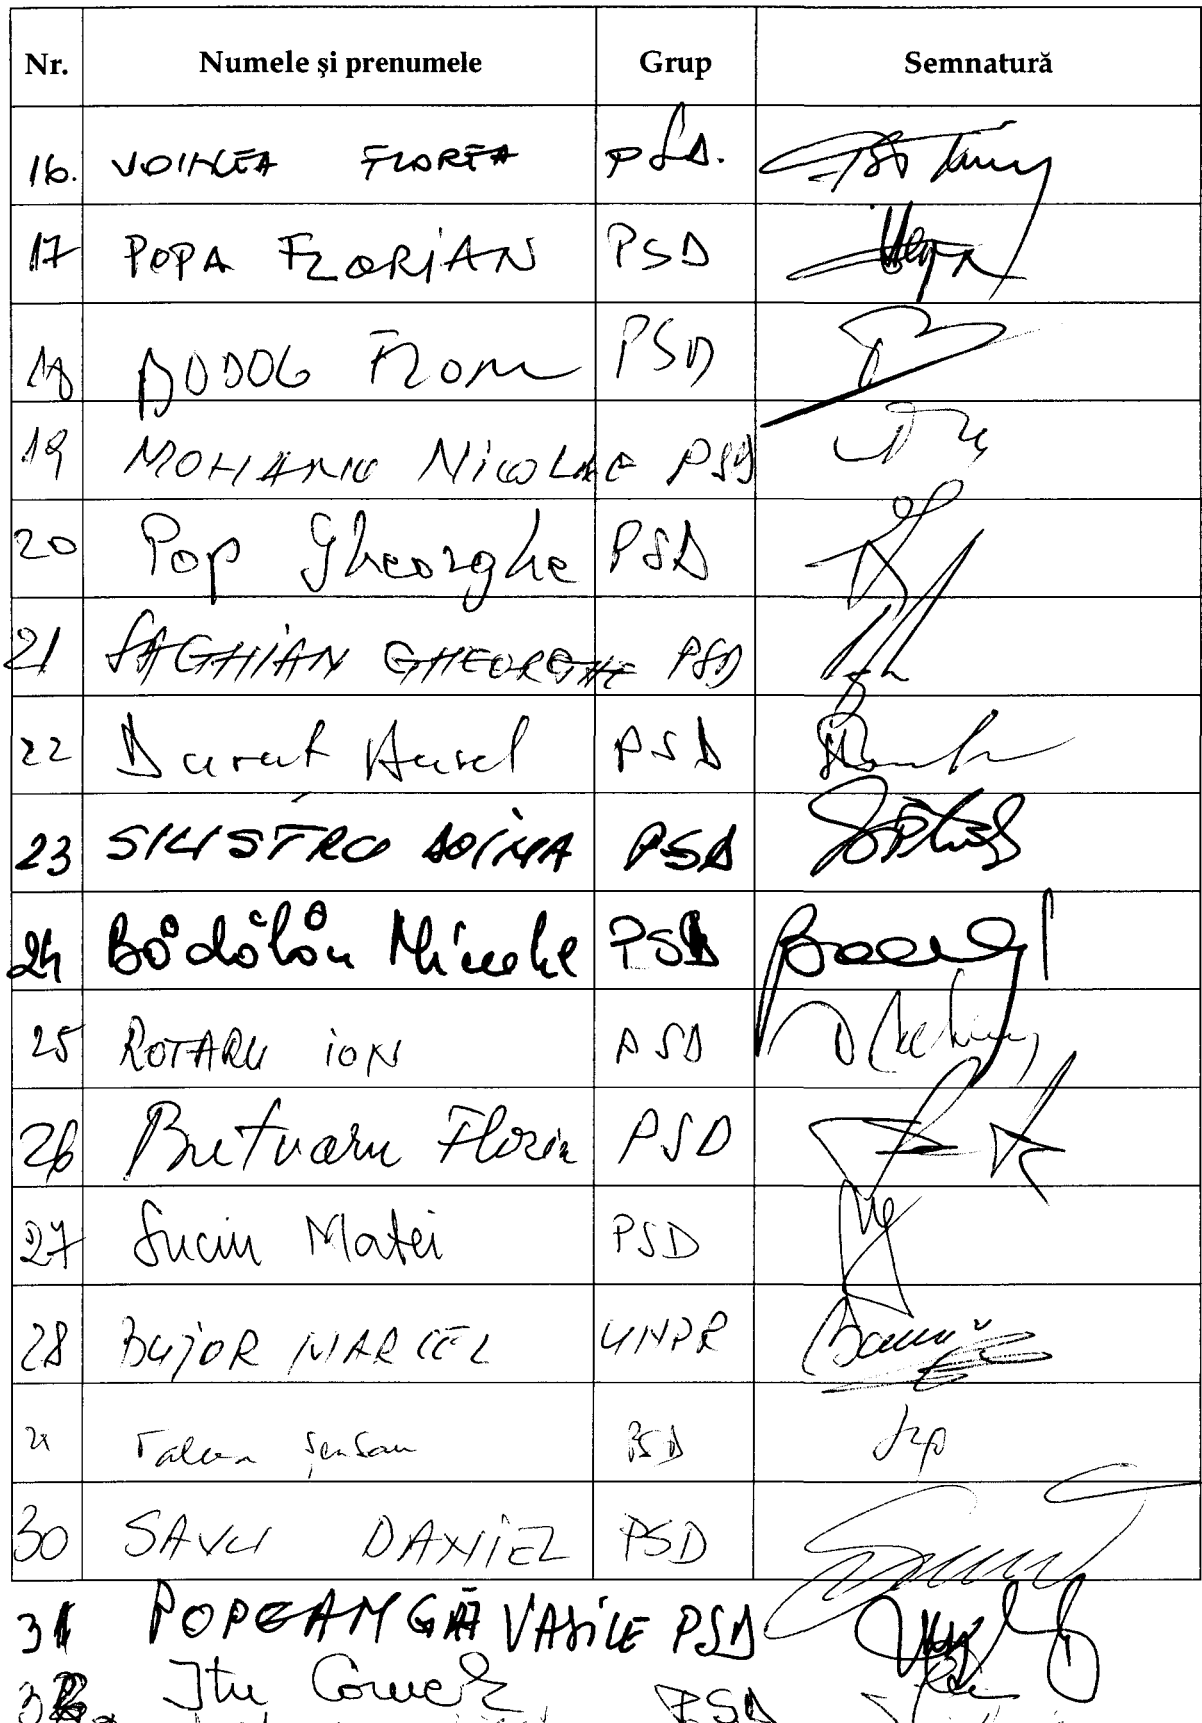 Nr. Numele şi prenumele Grup Semnatură
16. VOINEA FLOREA PSD.
17 POPA FLORIAN PSD
18 BODOG Florian PSD
19 MOHANU NICOLAE PSD
20 Pop Gheorghe PSD
21 SAGHIAN GHEORGHE PSD
22 Durut Aurel PSD
23 SILISTRU DOINA PSD
24 Bădălău Niculae PSD
25 ROTARU ION PSD
26 Butunaru Florin PSD
27 Suciu Matei PSD
28 BUJOR MARCEL UNPR
PSD
30 SAVU DANIEL PSD
31 POPEANGĂ VASILE PSD
32 Itu Cornel PSD